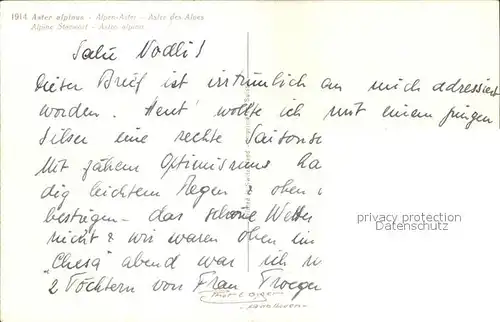 1914 Aster alpinus - Alpen-Aster - Aster des Alpes
Alpine Starwort - Astro alpino
Salü Nodli!
Dieser Brief ist irrtümlich an mich adressiert
worden. Heut' wollte ich mit einem jungen
Silser eine rechte Saisons
Mit zähem Optimismus ha
dig leichtem Regen & oben
bestiegen - das schöne Wetter
nicht & wir waren oben ein
"Chesa" abend war ich
2 Töchtern von Frau Troeger
privacy protection
watermark